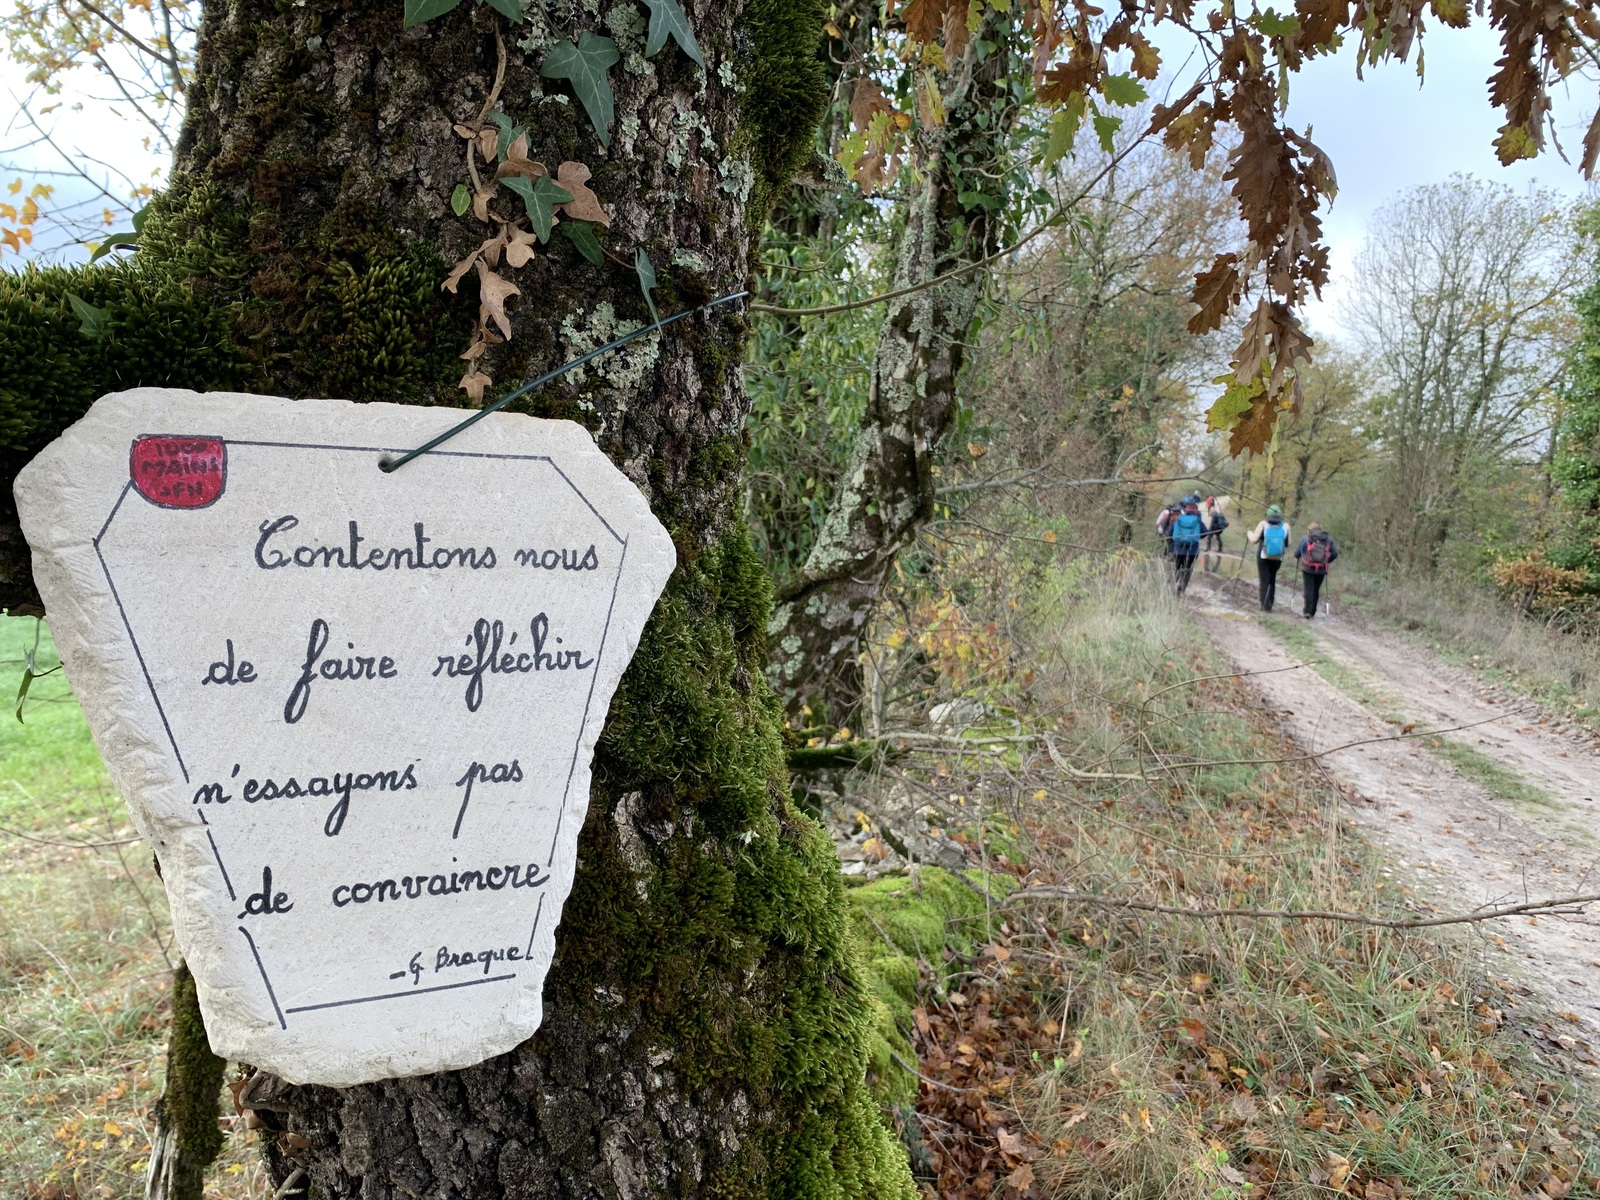 1000
MAINS
Contentons nous
de faire réfléchir
n'essayons pas
de convaincre
- G Braque.